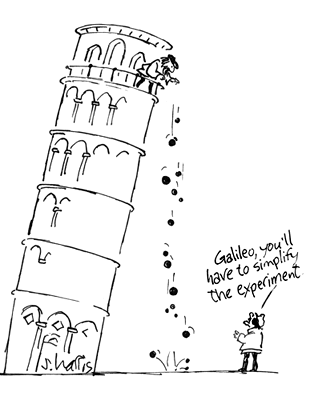 Galileo, you'll
have to simplify
the experiment
S. Harris